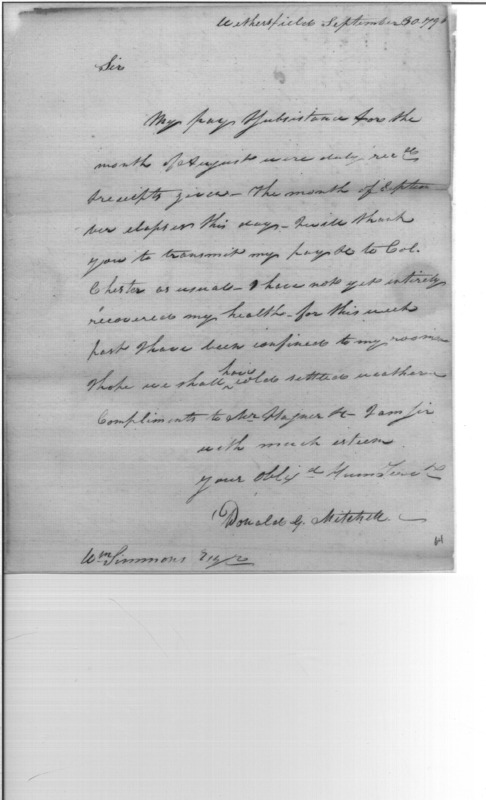 Wethersfield September 30 179
Sir
My pay & subsistance for the
month of August were duly recd
& receipts given - The month of Septem
ber elapses this day - I will thank
you to transmit my pay &c to Col.
Chester as usual - I have not yet entirely
recovered my health - for this week
past I have been confined to my room
I hope we shall have cold settled weather
Compliments to Mr Hagner &c - I am Sir
with much esteem
your Oblig'd Hum Servt
Donald G. Mitchell
Wm Simmons Esqr